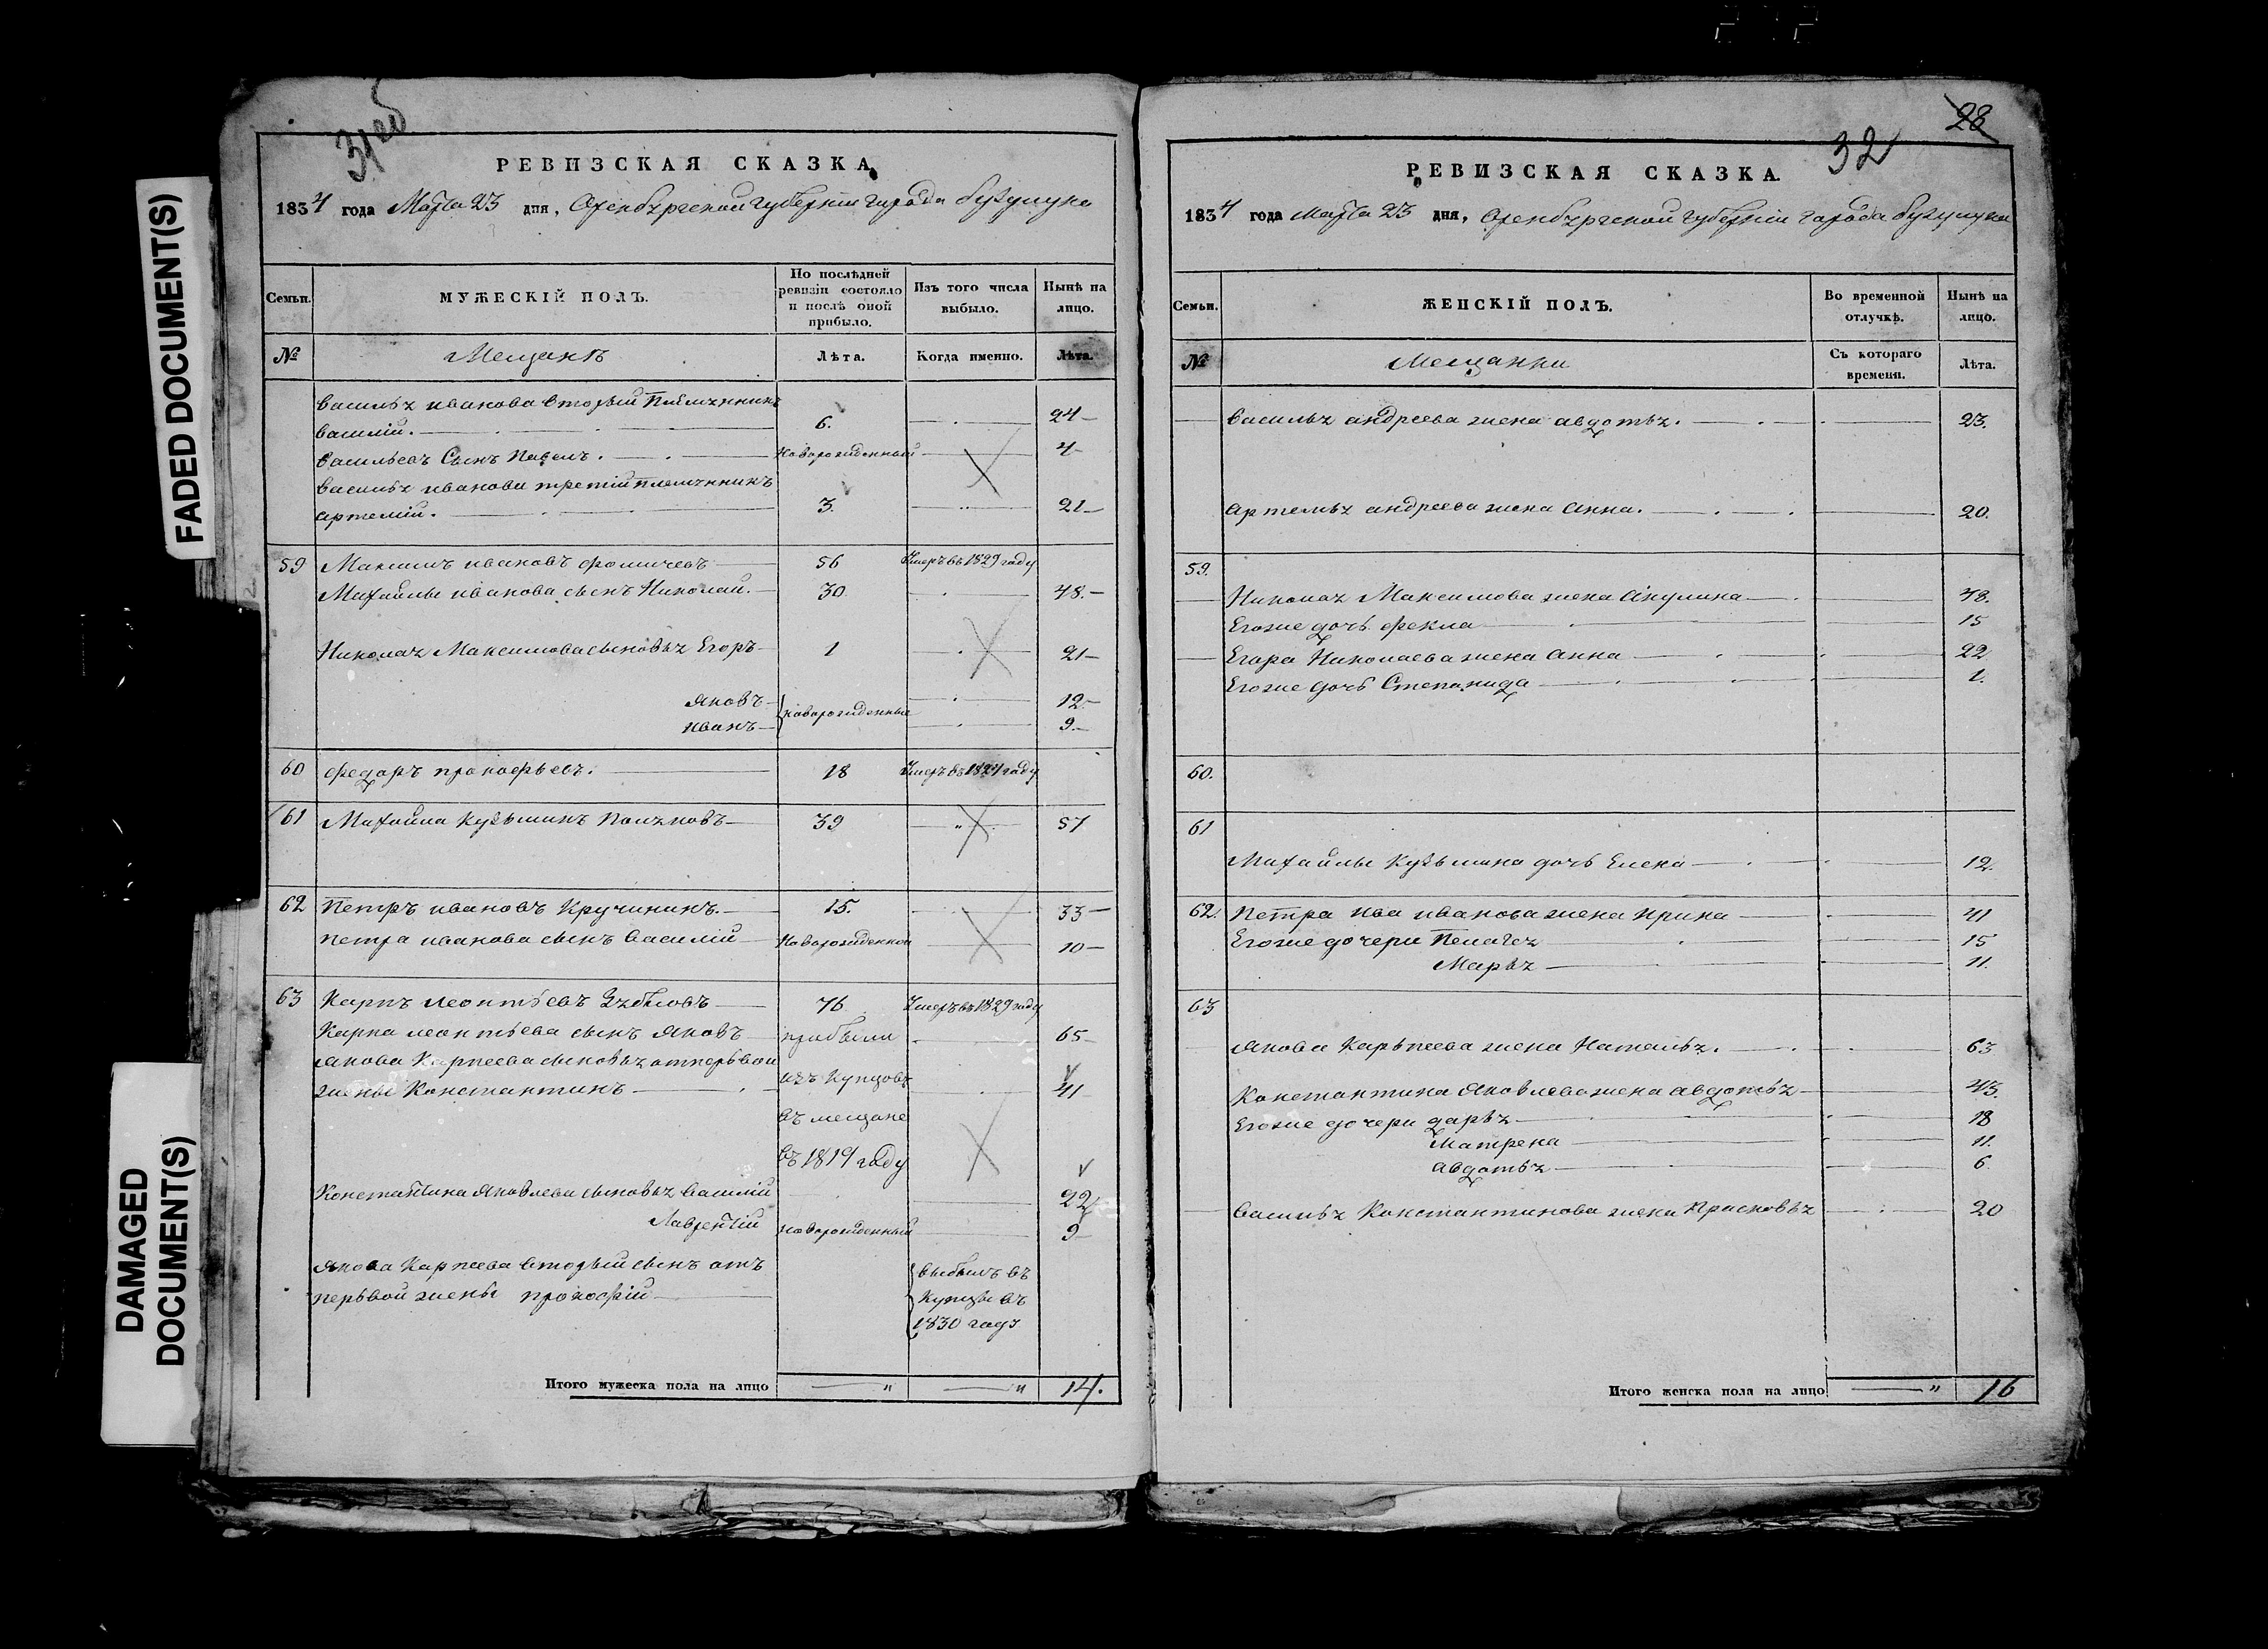 FADED DOCUMENT(S)
DAMAGED DOCUMENT(S)
31 об
РЕВИЗСКАЯ СКАЗКА,
1834 года Марта 23 дня, Оренбургской губернiи города бузулука
Семьи. МУЖЕСКIЙ ПОЛЪ. По послѣдней ревизiи состояло и послѣ оной прибыло. Изъ того числа выбыло. Нынѣ на лицо.
№ Мещанъ Лѣта. Когда именно. Лѣта.
василья иванова вторый племянникъ
василiй. 6. 24
васильевъ Сынъ Павелъ. новорожденный 4
василья иванова третiй племянникъ
артемiй. 3. 21
59 Максимъ ивановъ фомичевъ 56 Умеръ въ 1829 году
Михайлы иванова сынъ Николай. 30. 48.
Николая Максимова сыновья Егоръ 1 21
яковъ новорожденные 12
иванъ 9
60 федоръ прокофьевъ. 18 Умеръ въ 1827 году
61 Михайла кузьминъ 39 57
62 Петръ ивановъ Кручининъ. 15. 33
петра иванова сынъ василiй новорожденной 10
63 Карпъ леонтьевъ 76 Умеръ въ 1829 году
Карпа леонтьева сынъ яковъ прибыли 65
якова Карпеева сыновья отперьвой
жены Константинъ изъ купцовъ 41
въ мещане
въ 1819 году
Константина яковлева сыновья василiй 22
Лаврентiй новорожденный 9
якова Карпеева вторый сынъ отъ
перьвой жены прокофiй выбылъ въ
купцы въ
1830 году
Итого мужеска пола на лицо " " 14.
28
32
РЕВИЗСКАЯ СКАЗКА.
1834 года Марта 23 дня, Оренбургской губернiи города бузулука
Семьи. ЖЕНСКIЙ ПОЛЪ. Во временной отлучкѣ. Нынѣ на лицо.
№ Мещанки Съ котораго времени. Лѣта.
василья андреева жена авдотья. 23.
артемья андреева жена анна. 20.
59.
Николая Максимова жена акулина 48.
Егоже дочь фекла 15
Егора Николаева жена анна 22
Егоже дочь Степанида 1.
60.
61
Михайлы кузьмина дочь Елена 12.
62. Петра ива иванова жена ирина 41
Егоже дочери Пелагея 15
Марья 11.
63
якова Карьпеева жена Наталья. 63
Константина яковлева жена авдотья 43.
Егоже дочери дарья 18
Матрена 11.
авдотья 6.
василья Константинова жена прасковья 20
Итого женска пола на лицо " 16